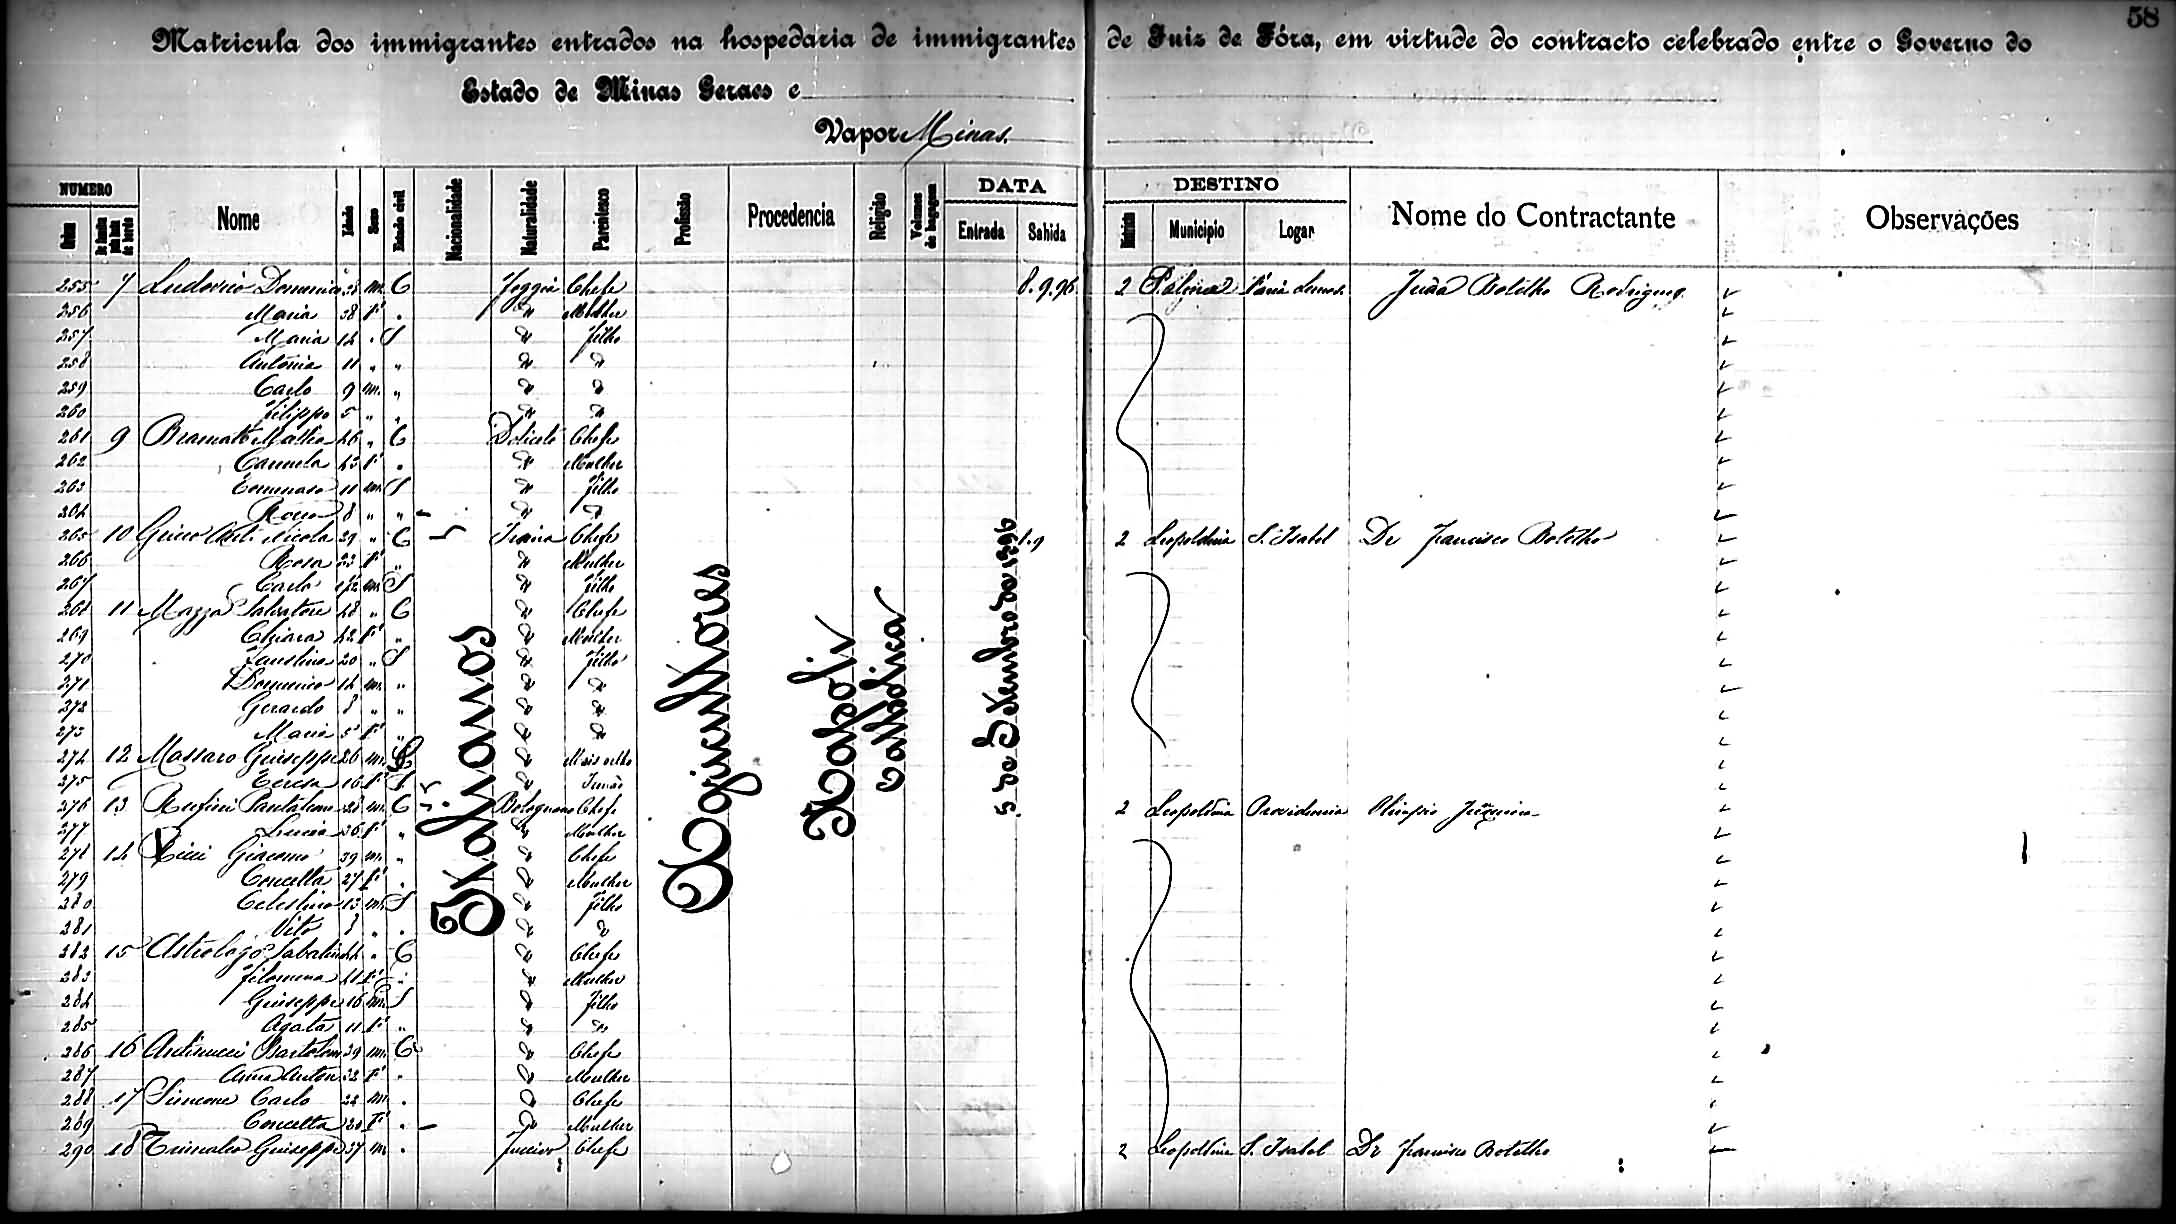 58
Matricula dos immigrantes entrados na hospedaria de immigrantes de Juiz de Fóra, em virtude do contracto celebrado entre o Governo do
Estado de Minas Geraes e
Vapor Minas.
NUMERO Nome Edade Sexo Estado civil Nacionalidade Naturalidade Parentesco Profissão Procedencia Religião Volumes de bagagem DATA DESTINO Nome do Contractante Observações
Ordem Entrada Sahida Municipio Logar
Italianos Agricultores Napoli Catholica 5 de Setembro de 1896
255 7 Ludovico 38 m. C Foggia Chefe 8.9.96 2 Palma Botelho Rodrigues
256 Maria 38 Fº " " Mulher
257 Maria 14 " S " Filho
258 Antonia 11 " " " "
259 Carlo 9 m. " " "
260 Filippo 5 " " " "
261 9 46 " C Chefe
262 Carmela 43 Fº " " Mulher
263 Tommaso 11 m. S " Filho
264 8 " " " "
265 10 Nicola 29 " C Chefe 8.9 2 Leopoldina S. Isabel Dr Francisco Botelho
266 Rosa 23 Fº " " Mulher
267 Carlo m. S " Filho
268 11 Mazza Salvatore 48 " C " Chefe
269 Chiara 42 Fº " " Mulher
270 Faustina 20 " S " Filho
271 Domenico 14 m. " " "
272 Gerardo 8 " " " "
273 Maria 5 Fº " " "
274 12 Massaro Giuseppe 26 m. " Mais velho
275 Teresa 16 Fº S " Irmão
276 13 28 m. C Chefe 2 Leopoldina Providencia
277 Lucia 26 Fº " " Mulher
278 14 Ricci Giacomo 39 m. " " Chefe
279 Concetta 27 Fº " " Mulher
280 Celestino 13 m. S " Filho
281 Vito 8 " " " "
282 15 Astrologo 44 " C " Chefe
283 Filomena 41 Fº " " Mulher
284 Giuseppe 16 m. S " Filho
285 Agata 11 Fº " " "
286 16 39 m. C " Chefe
287 Anna 32 Fº " " Mulher
288 17 Simone Carlo 22 m. " " Chefe
289 Concetta 20 Fº " " Mulher
290 18 Giuseppe 37 m. " Chefe 2 Leopoldina S. Isabel Dr Francisco Botelho